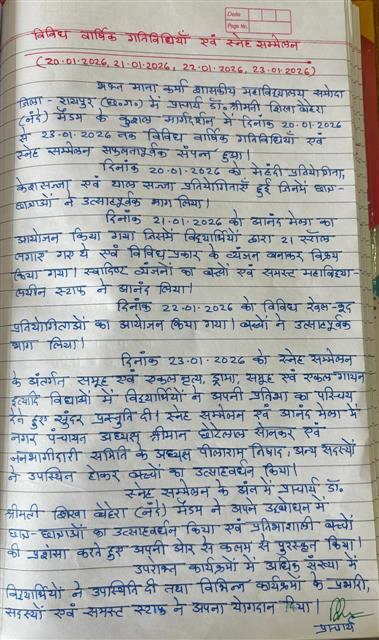 Date
Page No.
विविध वार्षिक गतिविधियाँ एवं स्नेह सम्मेलन
(20.01.2026, 21.01.2026, 22.01.2026, 23.01.2026)
भक्त माता कर्मा शासकीय महाविद्यालय समोदा
जिला - रायपुर (छ०ग०) में प्राचार्य डॉ. श्रीमती शिखा बेहेरा
(नंदे) मैडम के कुशल मार्गदर्शन में दिनांक 20.01.2026
से 23.01.2026 तक विविध वार्षिक गतिविधियाँ एवं
स्नेह सम्मेलन सफलतापूर्वक संपन्न हुआ।
दिनांक 20.01.2026 को मेहंदी प्रतियोगिता,
केशसज्जा एवं थाल सज्जा प्रतियोगिताएँ हुई जिनमें छात्र-
छात्राओं ने उत्साहपूर्वक भाग लिया।
दिनांक 21.01.2026 को आनंद मेला का
आयोजन किया गया जिसमें विद्यार्थियों द्वारा 21 स्टॉल
लगाए गए थे एवं विविध प्रकार के व्यंजन बनाकर विक्रय
किया गया। स्वादिष्ट व्यंजनों का बच्चों एवं समस्त महाविद्या-
लयीन स्टाफ ने आनंद लिया।
दिनांक 22.01.2026 को विविध खेल-कूद
प्रतियोगिताओं का आयोजन किया गया। बच्चों ने उत्साहपूर्वक
भाग लिया।
दिनांक 23.01.2026 को स्नेह सम्मेलन
के अंतर्गत समूह एवं एकल नृत्य, ड्रामा, समूह एवं एकल गायन
इत्यादि विधाओं में विद्यार्थियों ने अपनी प्रतिभा का परिचय
देते हुए सुंदर प्रस्तुति दी। स्नेह सम्मेलन एवं आनंद मेला में
नगर पंचायत अध्यक्ष श्रीमान छोटेलाल सोनकर एवं
जनभागीदारी समिति के अध्यक्ष पीलाराम निषाद, अन्य सदस्यों
ने उपस्थित होकर बच्चों का उत्साहवर्धन किया।
स्नेह सम्मेलन के अंत में प्राचार्य डॉ.
श्रीमती शिखा बेहेरा (नंदे) मैडम ने अपने उद्बोधन में
छात्र-छात्राओं का उत्साहवर्धन किया एवं प्रतिभाशाली बच्चों
की प्रशंसा करते हुए अपनी ओर से कलम से पुरस्कृत किया।
उपरोक्त कार्यक्रमों में अधिक संख्या में
विद्यार्थियों ने उपस्थिति दी तथा विभिन्न कार्यक्रमों के प्रभारी,
सदस्यों एवं समस्त स्टाफ ने अपना योगदान दिया।
प्राचार्य